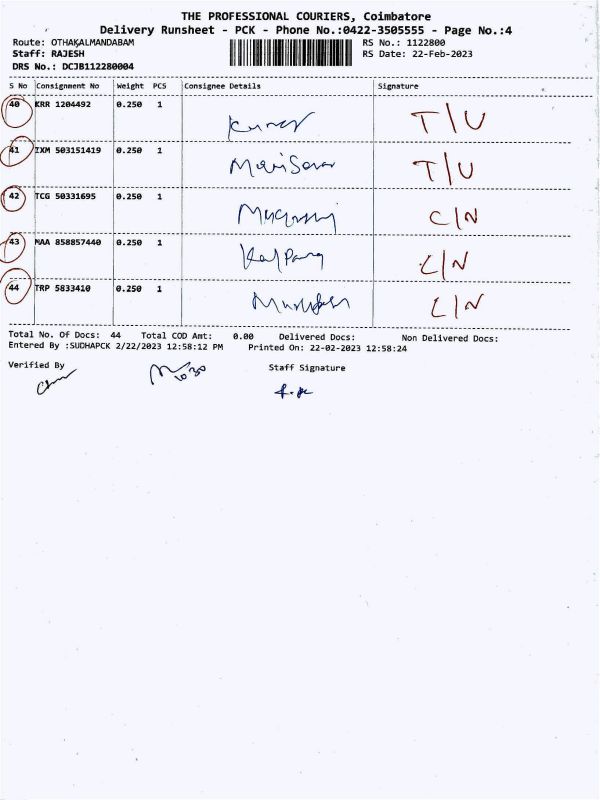 THE PROFESSIONAL COURIERS, Coimbatore
Delivery Runsheet - PCK - Phone No.:0422-3505555 - Page No.:4
Route: OTHAKALMANDABAM RS No.: 1122800
Staff: RAJESH RS Date: 22-Feb-2023
DRS No.: DCJB112280004
S No Consignment No Weight PCS Consignee Details Signature
40 KRR 1204492 0.250 1 Kumar T/U
41 IXM 503151419 0.250 1 T/U
42 TCG 50331695 0.250 1 C/N
43 MAA 858857440 0.250 1 C/N
44 TRP 5833410 0.250 1 C/N
Total No. Of Docs: 44 Total COD Amt: 0.00 Delivered Docs: Non Delivered Docs:
Entered By :SUDHAPCK 2/22/2023 12:58:12 PM Printed On: 22-02-2023 12:58:24
Verified By Staff Signature